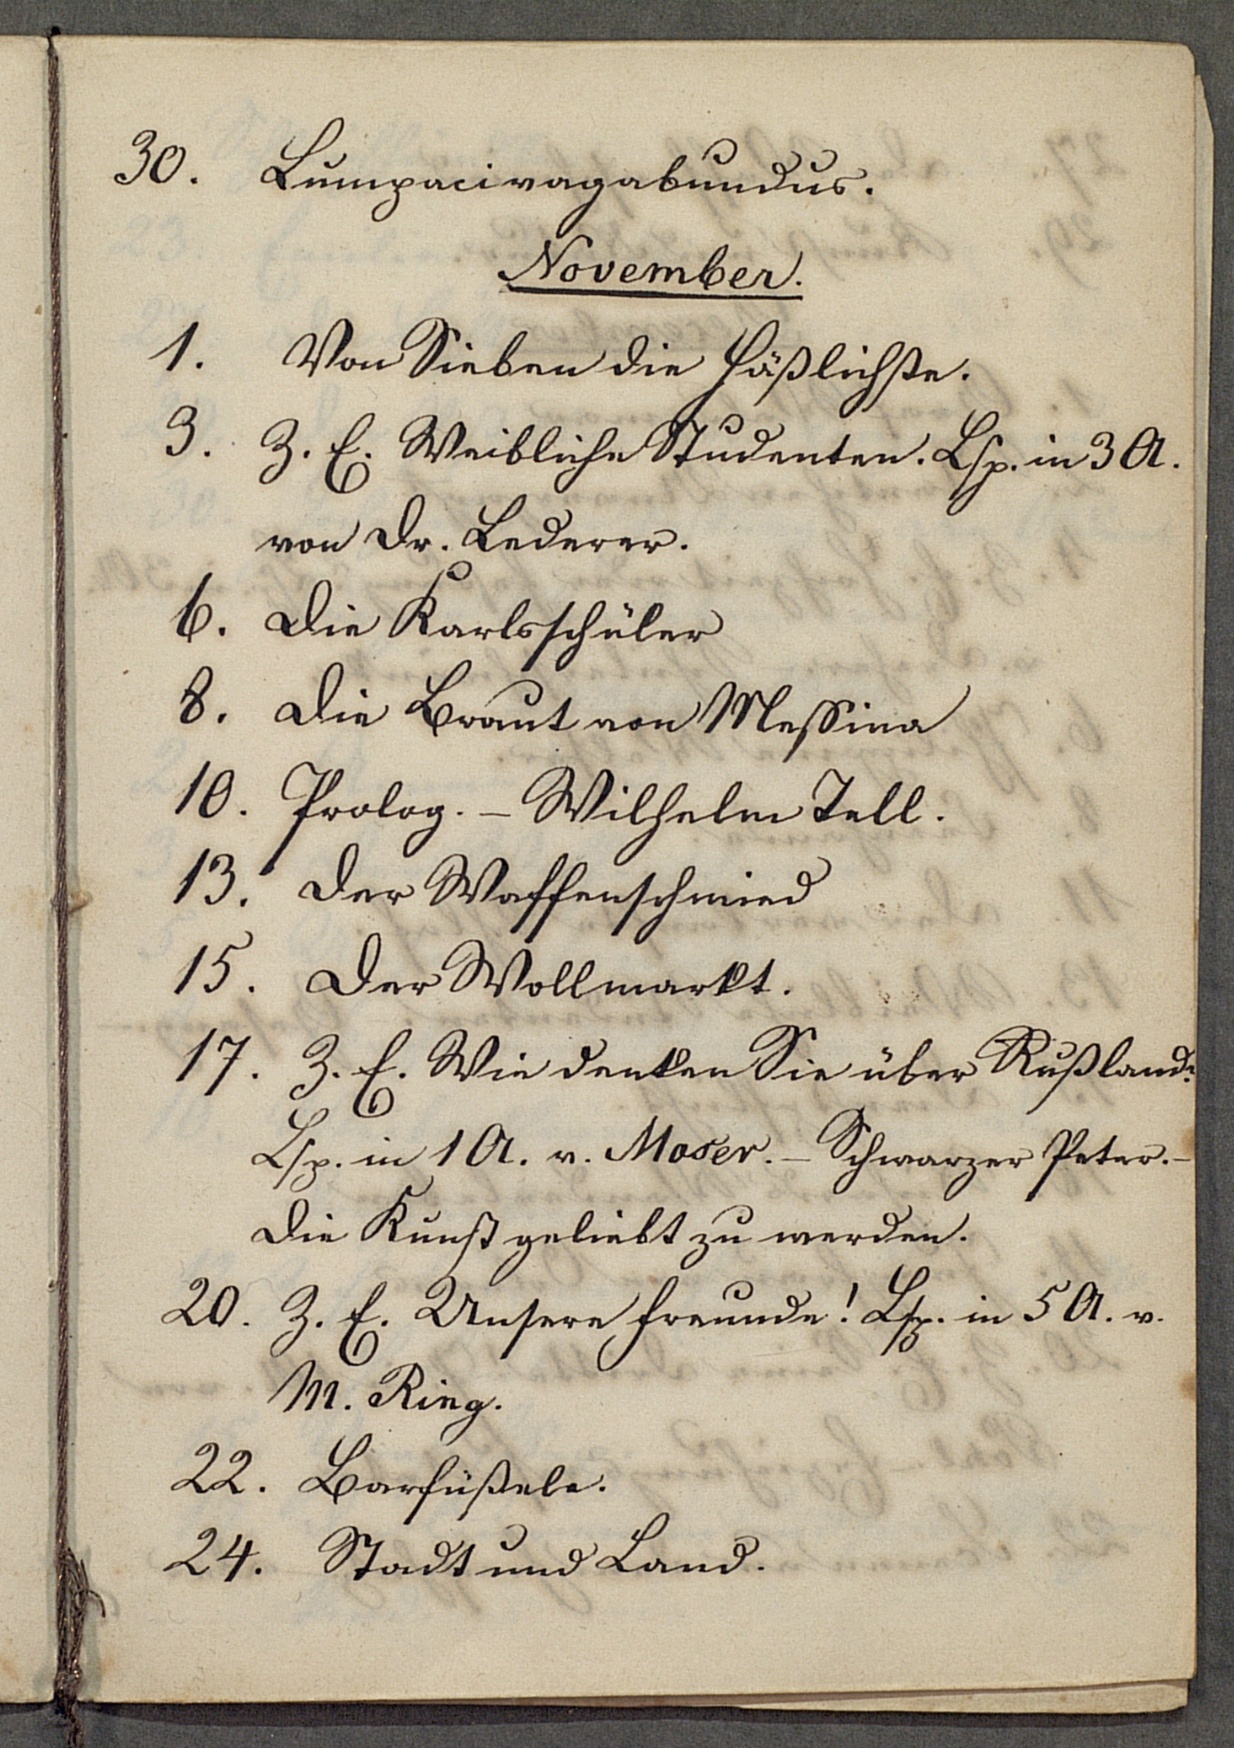 30. Lumpacivagabundus.
November.
1. Von Sieben die Häßlichste.
3. Z. E. Weibliche Studenten. Lsp. in 3 A.
von Dr. Lederer.
6. Die Karlsschüler
8. Die Braut von Messina
10. Prolog. – Wilhelm Tell.
13. Der Waffenschmied
15. Der Wollmarkt.
17. Z. E. Wie denken Sie über Rußland?
Lsp. in 1 A. v. Moser. – Schwarzer Peter. –
Die Kunst geliebt zu werden.
20. Z. E. Unsere Freunde! Lsp. in 5 A. v.
M. Ring.
22. Barfüßele.
24. Stadt und Land.